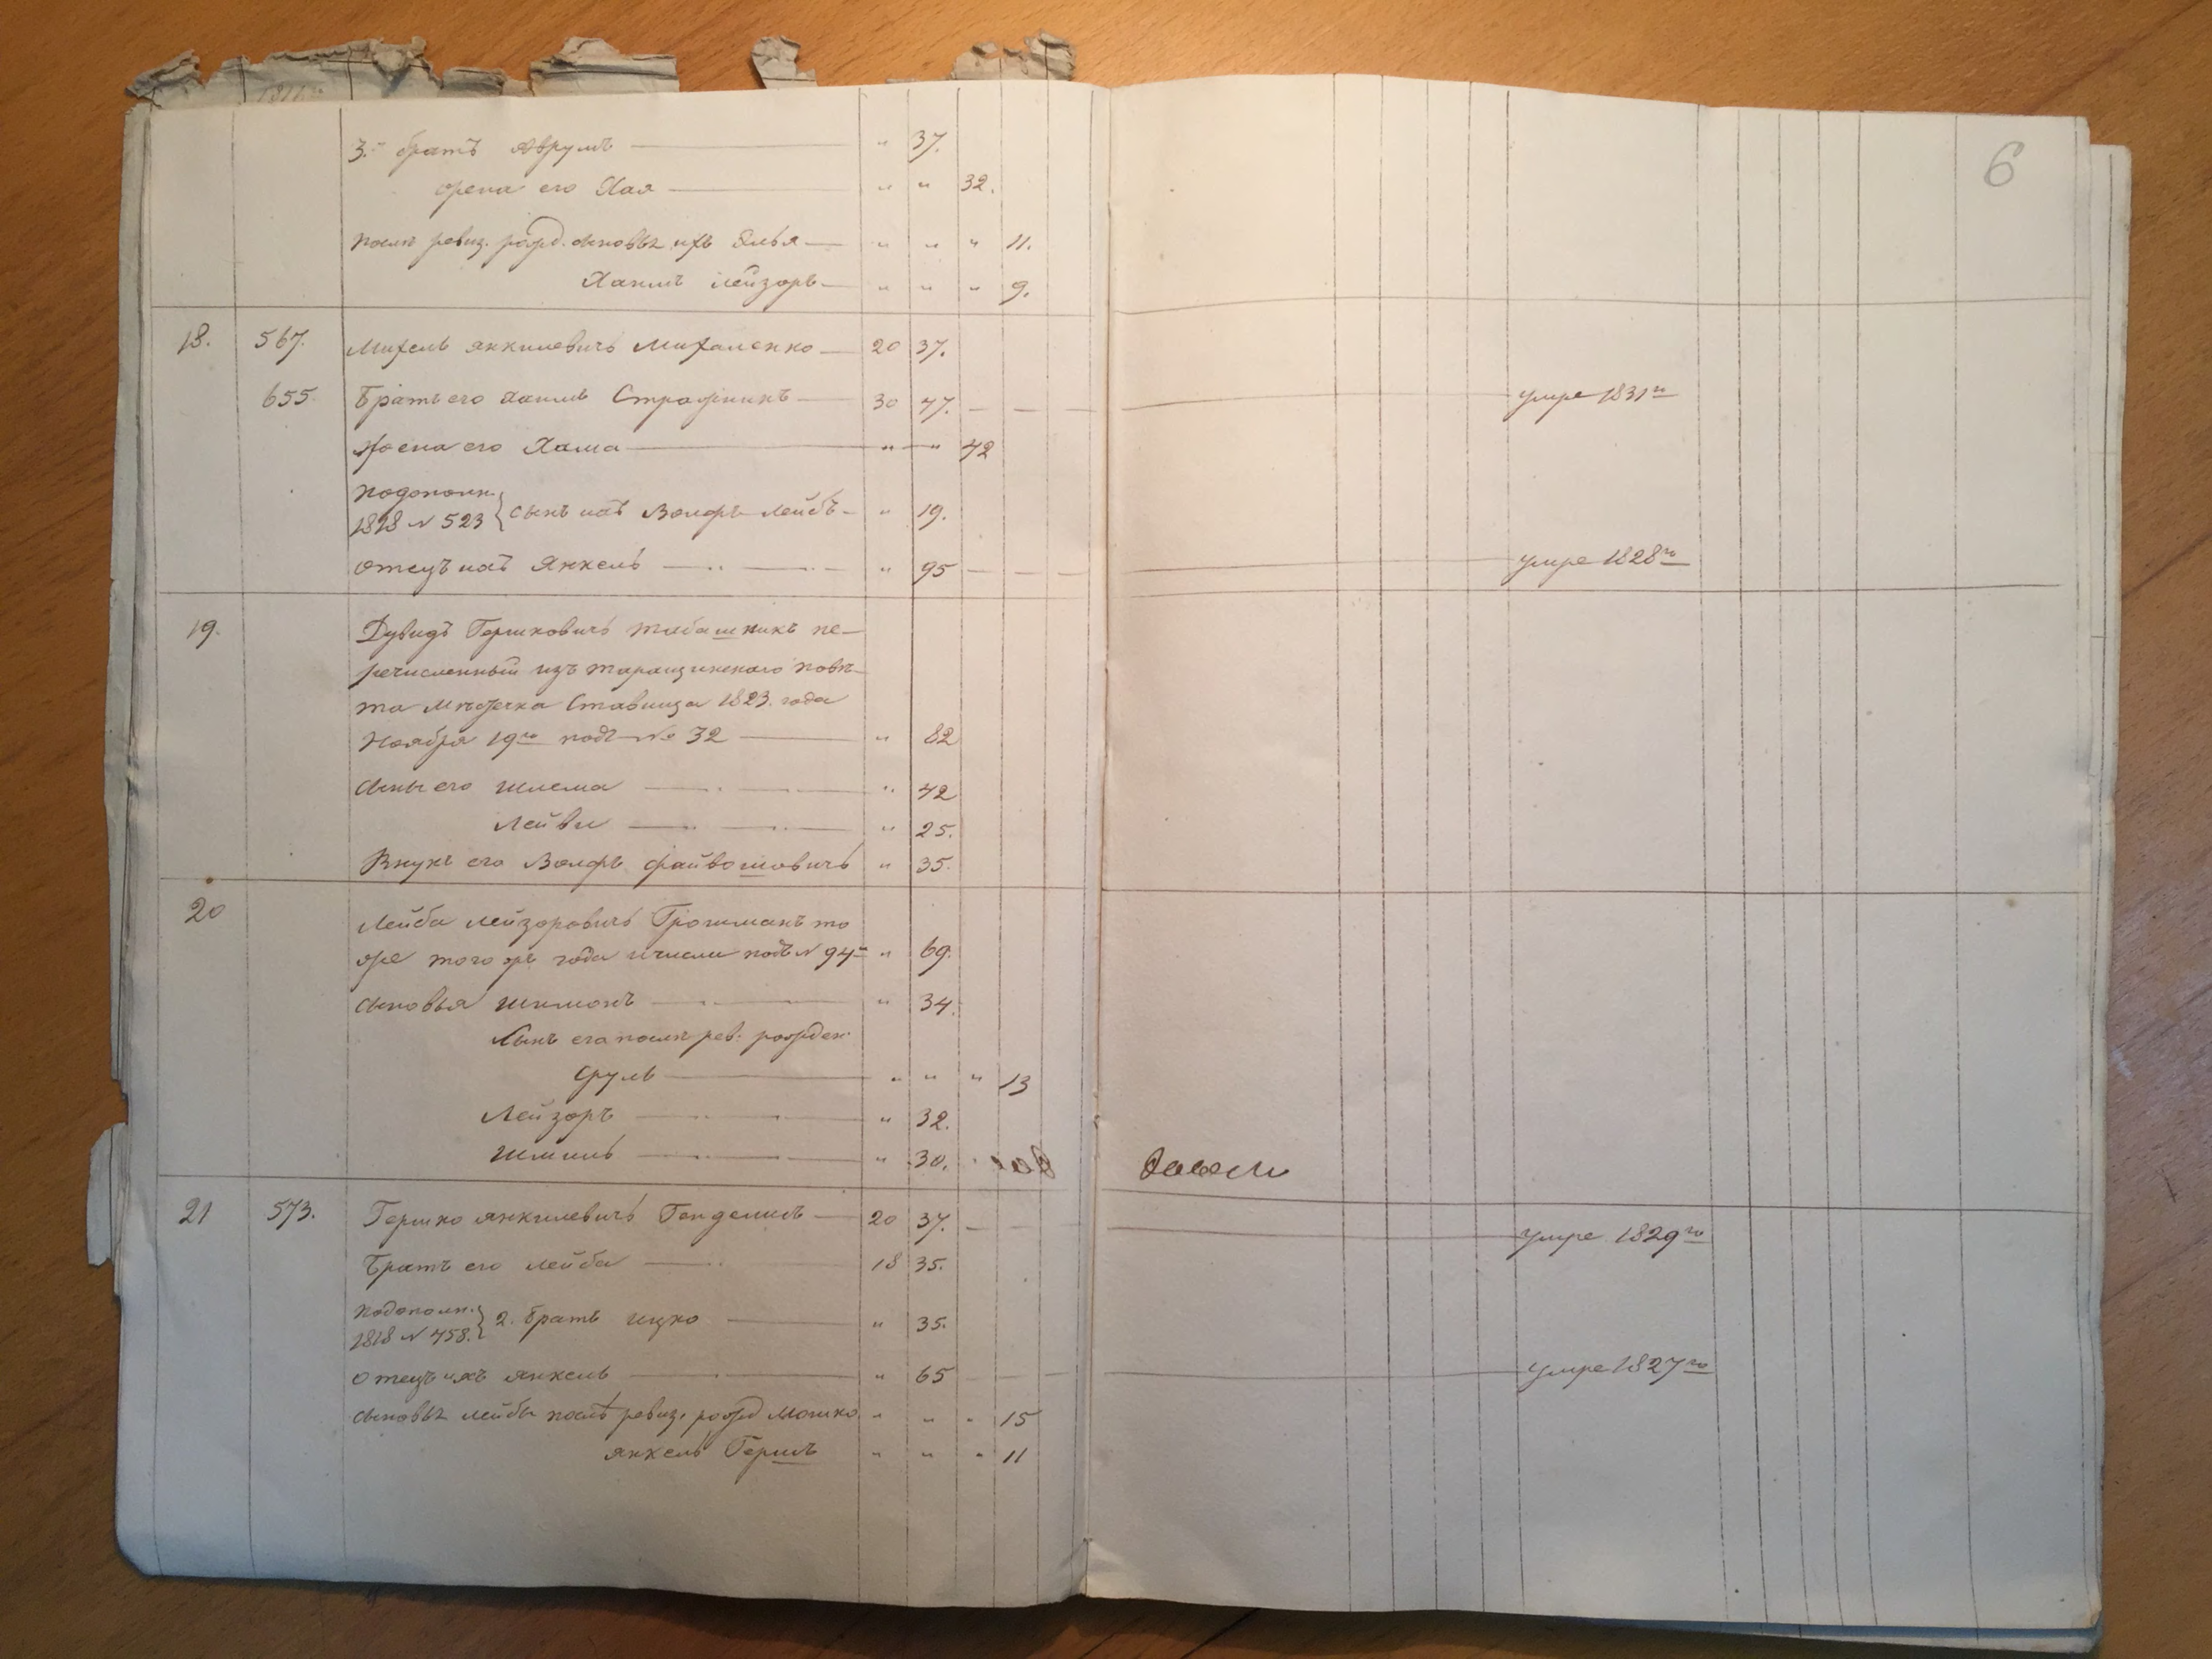 1811го
6
3.й братъ Аврумъ — " 37.
жена его Хая — " " 32.
послѣ ревиз. рожд. сыновья ихъ Элья — " " " 11.
Хаимъ Лейзоръ — " " " 9.
18. 567. Михель Янкилевичъ Михаленко — 20 37.
655. Братъ его Хаимъ Стражникъ — 30 47. — — — умре 1831го
Жена его Хама — " " 42
по дополн. 1818 N 523 } сынъ ихъ Волфъ Лейбъ — " 19.
отецъ ихъ Янкель — " 95 — — — умре 1828го
19. Дувидъ Гершковичъ Табашникъ пе-
речисленный изъ таращинского повѣ-
та мѣстечка Ставища 1823. года
Ноября 19го подъ № 32 — " 82
сыны его Шлема — " 42
Лейви — " 25.
Внукъ его Волфъ Файвошовичъ " 35.
20 Лейба Лейзоровичъ Гройсманъ то
же того же года и числа подъ N 94м " 69.
сыновья Шимонъ — " 34.
Сынъ его послѣ рев. рожден.
Сруль — " " " 13
Лейзоръ — " 32.
Шмиль — " 30.
21 573. Гершко Янкилевичъ Генделисъ — 20 37. — — умре 1829го
Братъ его Лейба — 18 35.
по дополн. 1818 N 458. } 2. братъ Ицко — " 35.
отецъ ихъ Янкель — " 65 — — — умре 1827го
сыновья Лейбы послѣ ревиз. рожд Мошко " " " 15
Янкель Гершъ " " " 11